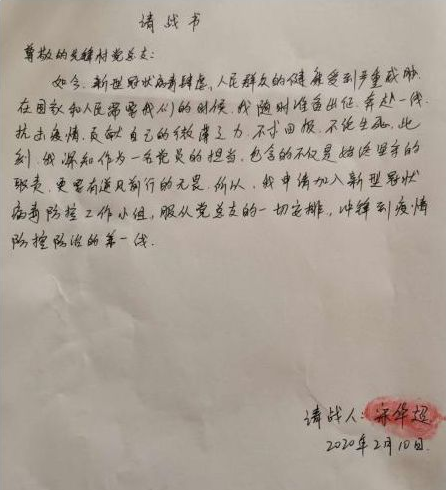 请战书
尊敬的先锋村党总支:
如今,新型冠状病毒肆虐,人民群众的健康受到严重威胁
在国家和人民需要我们的时候,我随时准备出征,奔赴一线
抗击疫情,贡献自己的微薄之力,不求回报,不论生死,此
刻,我深知作为一名党员的担当,包含的不仅是始终坚守的
职责,更要有逆风前行的无畏,所以,我申请加入新型冠状
病毒防控工作小组,服从党总支的一切安排,冲锋到疫情
防控防治的第一线.
请战人:宋华超
2020年2月10日.